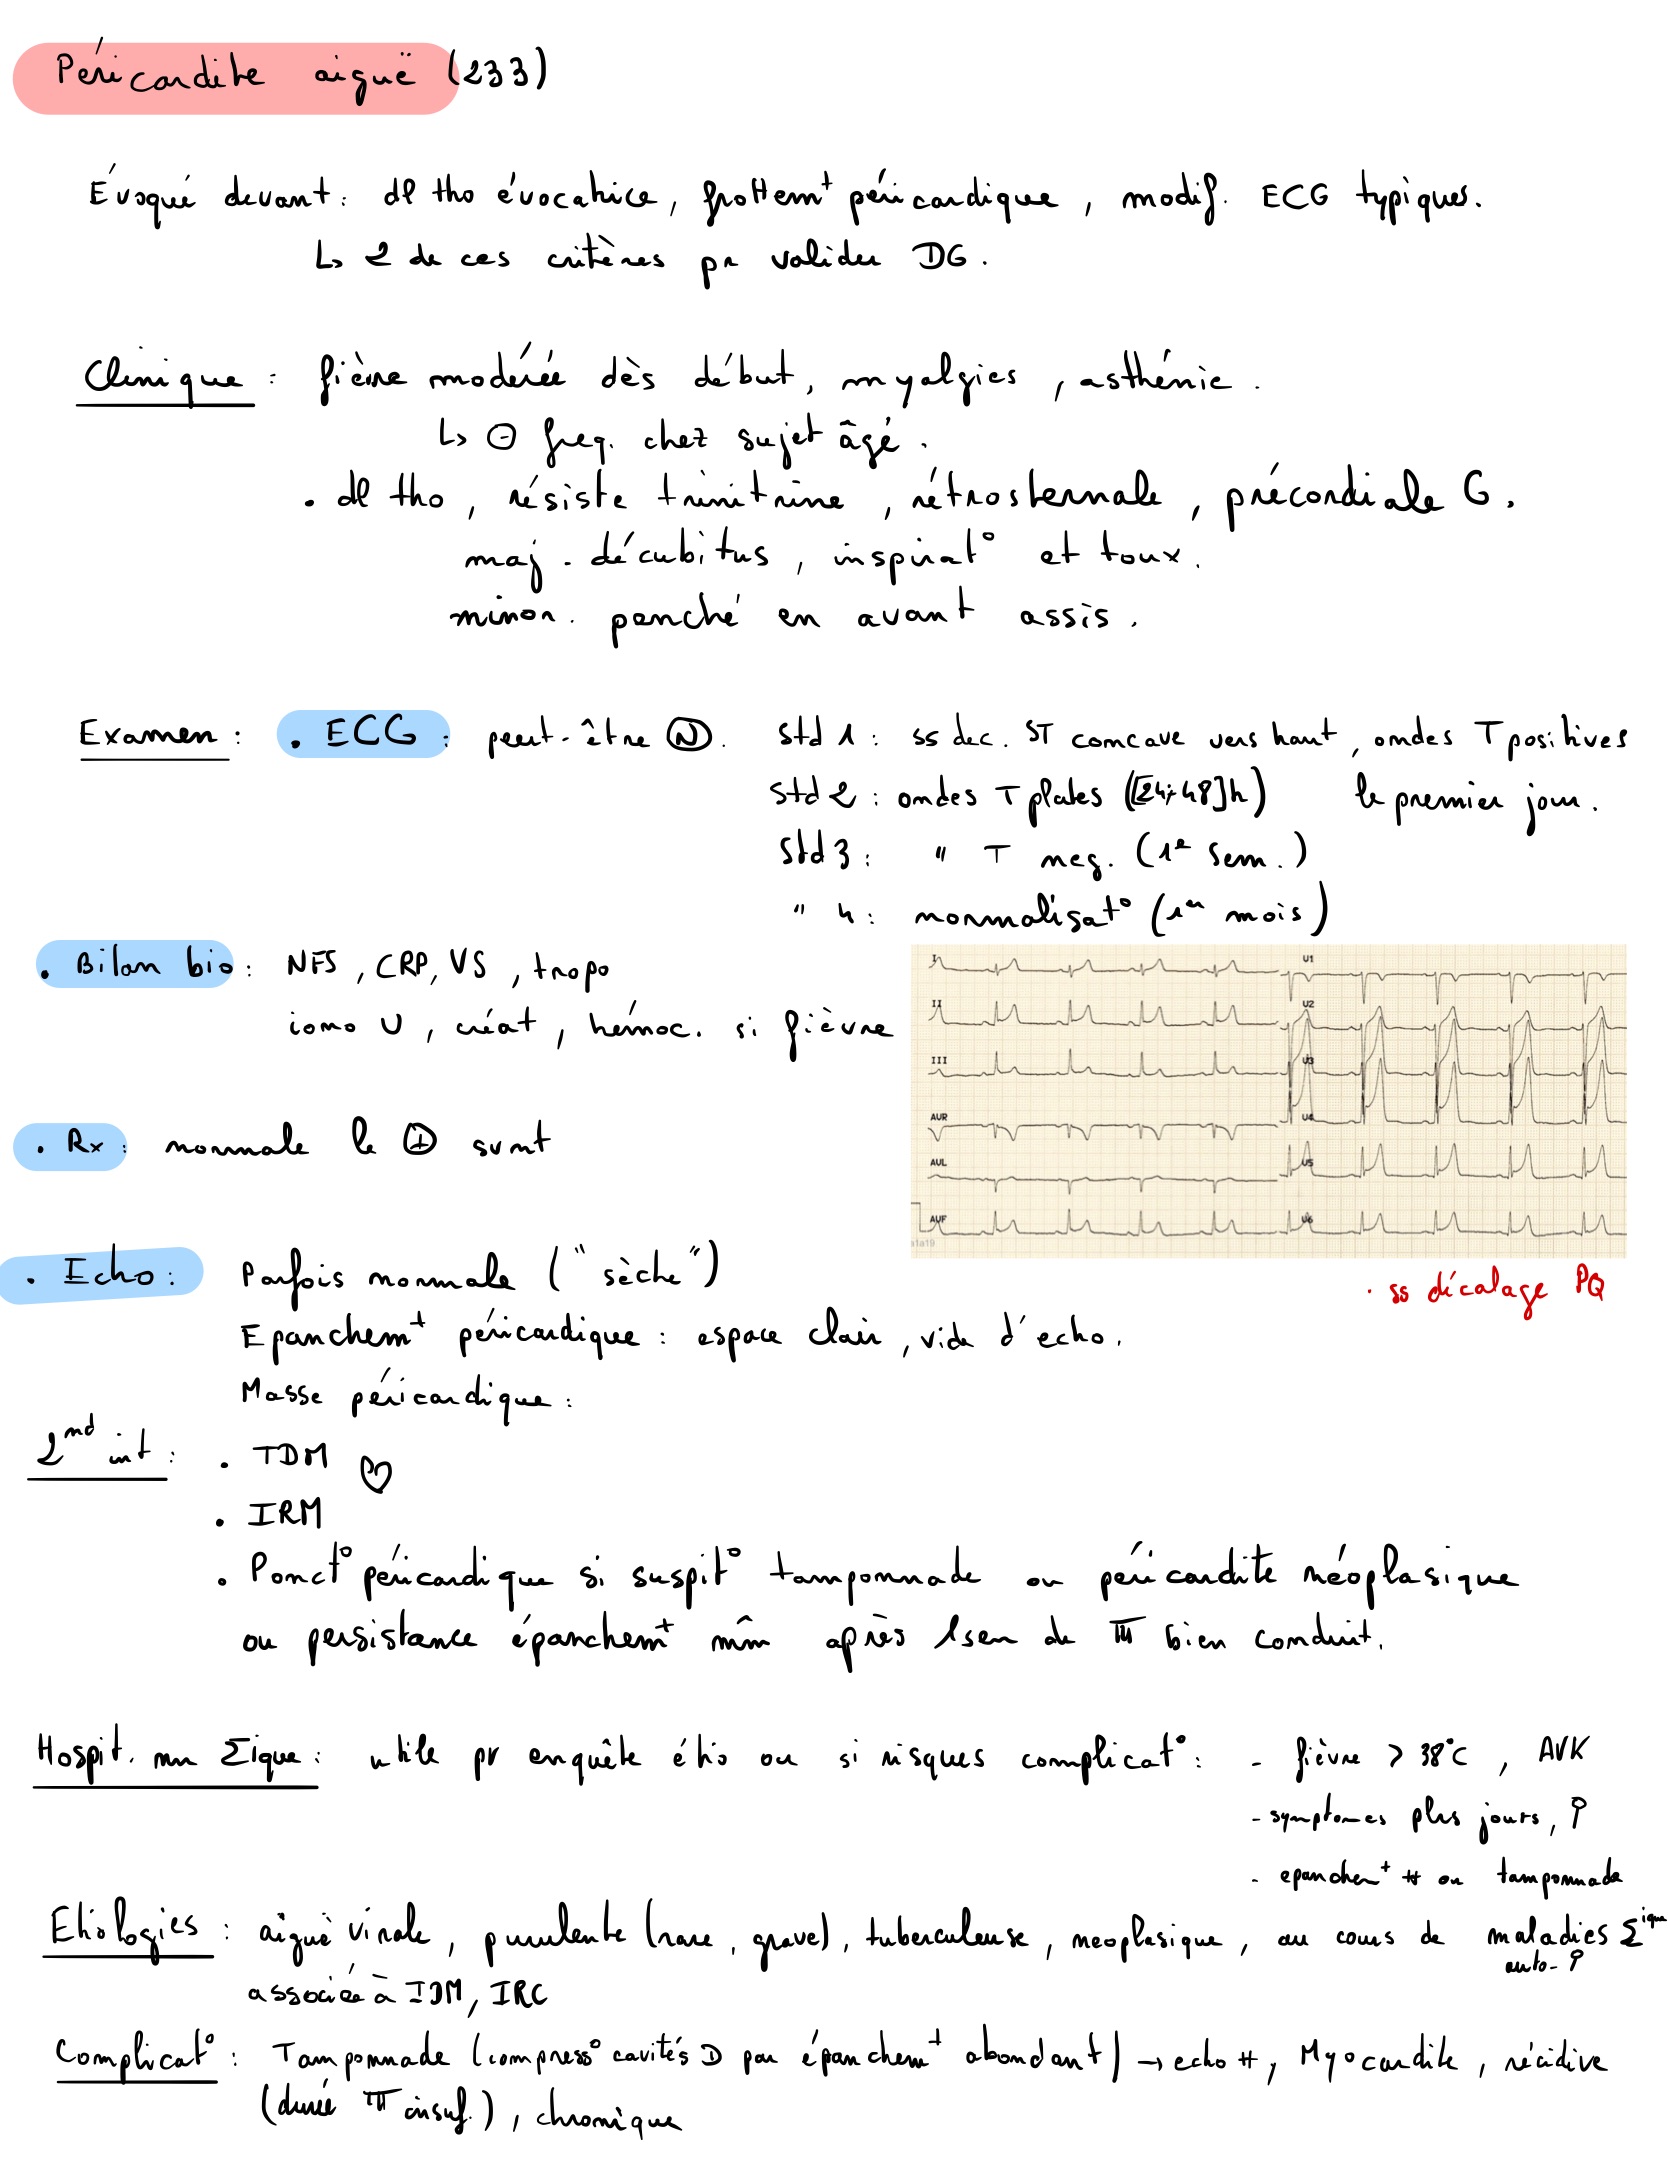 Péricardite aiguë (233)
Évoqué devant : dl tho évocatrice, frottem^t péricardique, modif. ECG typiques.
↳ 2 de ces critères pr valider DG.
Clinique : fièvre modérée dès début, myalgies, asthénie.
↳ ⊖ freq. chez sujet âgé.
• dl tho, résiste trinitrine, rétrosternale, précordiale G.
maj. décubitus, inspirat° et toux.
minor. penché en avant assis.
Examen : • ECG : peut-être Ⓝ. Std 1 : ss dec. ST concave vers haut, ondes T positives
le premier jour.
Std 2 : ondes T plates ([24;48]h)
Std 3 : " T neg. (1e sem.)
" 4 : normalisat° (1er mois)
• Bilan bio : NFS, CRP, VS, tropo
iono U, créat, hémoc. si fièvre
I II III AVR AVL AVF
V1 V2 V3 V4 V5 V6
a1a19
• Rx : normale le ⊕ svnt
• ss décalage PQ
• Echo : Parfois normale ("sèche")
Epanchem^t péricardique : espace clair, vide d'echo.
Masse péricardique :
2nd int : • TDM ♡
• IRM
• Ponct° péricardique si suspit° tamponnade ou péricardite néoplasique
ou persistance épanchem^t mm après 1 sem de TTT bien conduit.
Hospit. nn Σique : utile pr enquête étio ou si risques complicat° : - fièvre > 38°C, AVK
- symptomes plrs jours,
- epanchem^t # ou tamponnade
Etiologies : aiguë virale, purulente (rare, grave), tuberculeuse, neoplasique, au cours de maladies Σique
auto-
associée à IDM, IRC
Complicat° : Tamponnade (compress° cavités D par épanchem^t abondant) → echo #, Myocardite, récidive
(durée TTT insuf.), chronique